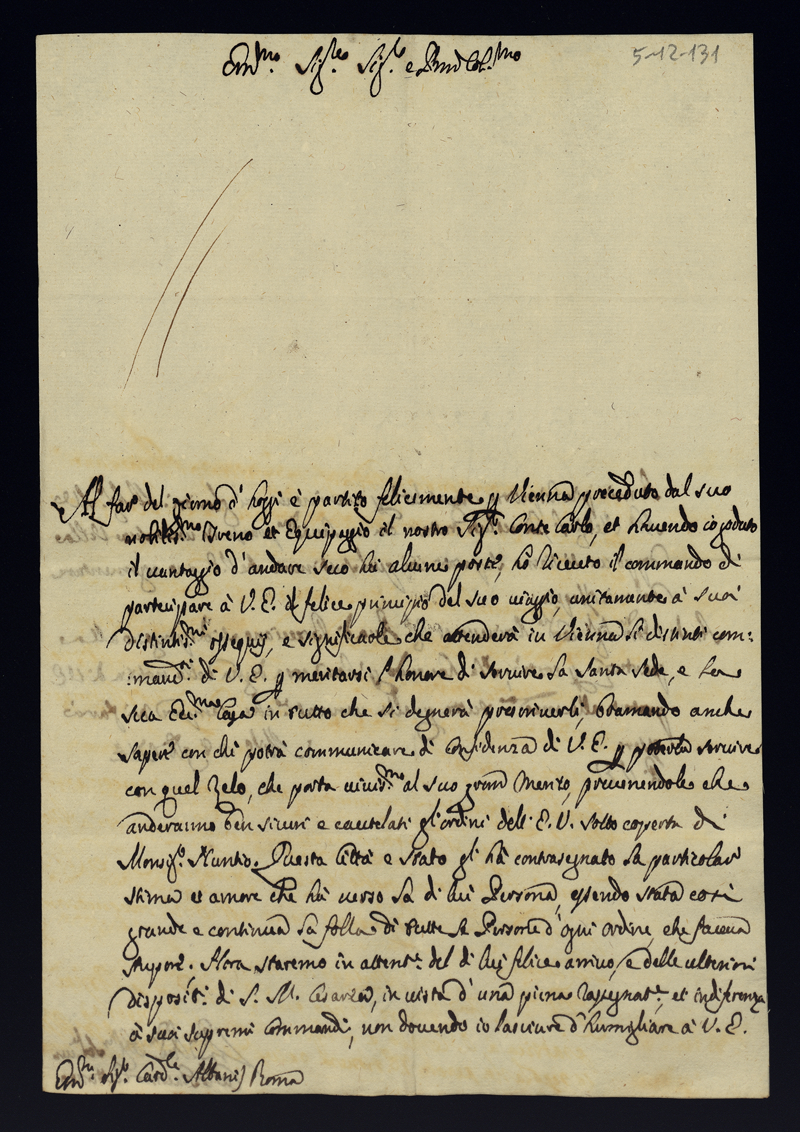 Em.mo Sig.re Sig.re e Pron Col.mo
5-12-131
Al far del giorno d'hoggi è partito felicemente p Vienna preceduto dal suo
nobiliss.mo Treno et Equipaggio il nostro Sig.r Conte Carlo, et havendo io goduto
il vantaggio d'andare seco hà alcune poste, hò ricevuto il commando di
participare à V. E. il felice principio del suo viaggio, unitamente à suoi
distintis.mi ossequij, e significarle che attenderà in Vienna li distinti com:
:mandi di V. E. p meritarsi l'honore di servire la Santa Sede, e la
sua Ecc.ma Casa in tutto che si degnerà prescriverli, bramando anche
saper con chi potrà communicare di confidenza di V. E. p poterla servire
con quel zelo, che porta al suo gran Merito, prevenendole che
anderanno ben sicuri e cautelati gl'ordini dell'E. V. sotto coperta di
Monsig.r Nuntio. Questa Città e Stato gl'hà contrasegnato la particolar
stima et amore che hà verso la di lui Persona, essendo stata così
grande e continua la folla di tutte le Persone d'ogni ordine, che faceva
stupore. Hora staremo in attent.e del di lui felice arrivo, e delle ulteriori
disposit.i di S. M. Cesarea, in vista d'una piena rassegnat.e, et indiferenza
à suoi supremi Commandi, non dovendo io lasciare d'humigliare à V. E.
Em.mo Sig.r Card.le Albani Roma